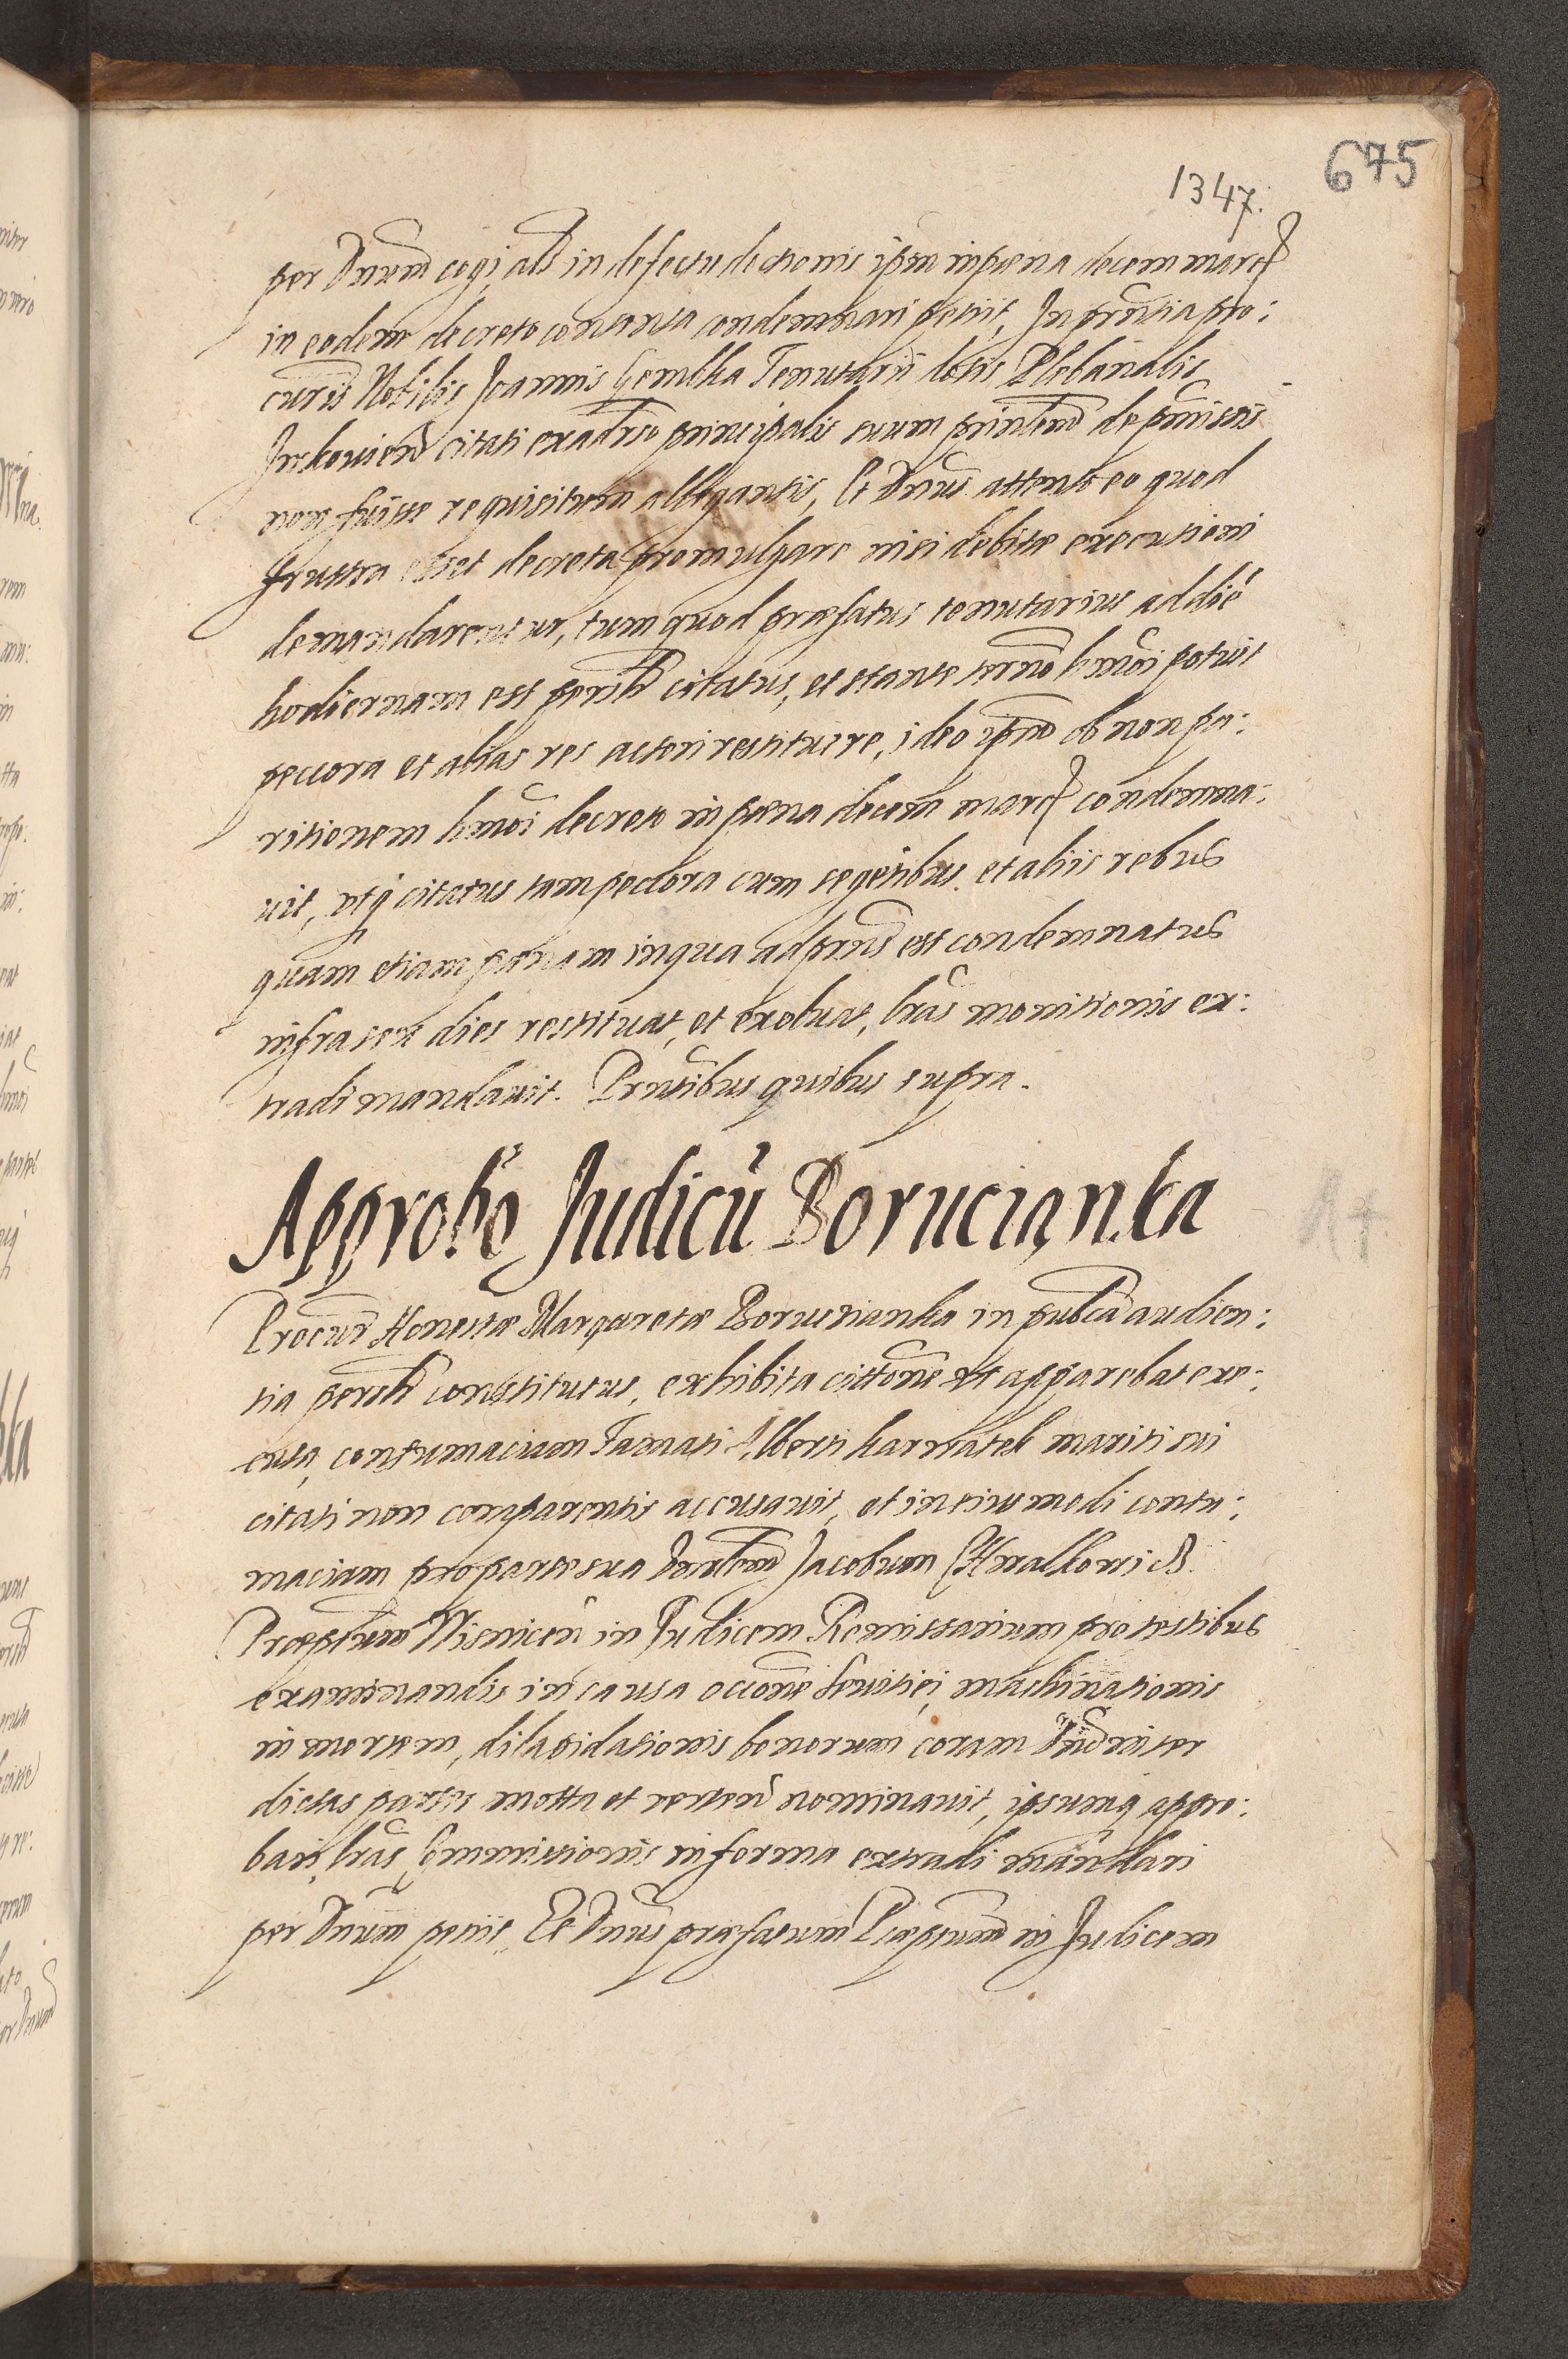 675
1347.
per Dnum cogi, als in defectu dectionis ipm in pœna decem marcȝ
in eodem decreto contenta condemnari petiit, In pntia pro:
curis Nobilis Joannis Gemlka Tenutarii dotis Plebanalis
citati ex adrso principalis suum de pmissis
non fuisse requisitum allegantis, Et Dnus attento eo quod
frustra esset decreta promulgare nisi debitæ executioni
demandarentur, tum quod præfatus tenutarius ad dië
hodiernam est persltr citatus, et stante termo hmoi potuit
peccora et alias res actori restituere, ideo ipm ob non pa:
ritionem hmoi decreto in pœna decem marcȝ condemna:
uit, utq citatus tam peccora cum segetibus et aliis rebus
quam etiam pœnam in qua ad pns est condemnatus
infra sex dies restituat, et exoluat, lras monitionis ex:
tradi mandauit. Prntibus quibus supra.
Approbo Judicu Borucianka
Procur Honestæ Margaretæ Borucianka in publca audien:
tia persltr constitutus, exhibita cittone ut apparebat exe:
cuta, contumaciam Famati Alberti mariti sui
citati non comparentis accusauit, et in eiusmodi contu:
maciam pro parte sua Jacobum
Præptum Wisnicen in Judicem Remissarium pro testibus
examinandis in causa occone seuitiei, machinationis
in mortem, dilapidationis bonorum coram Dno inter
dictas partes motta et verten nominauit, ipsumq appro:
bari, lras Commissionis in forma extradi mandari
per Dnum petiit, Et Dnus præfatum Præptum in Judicem